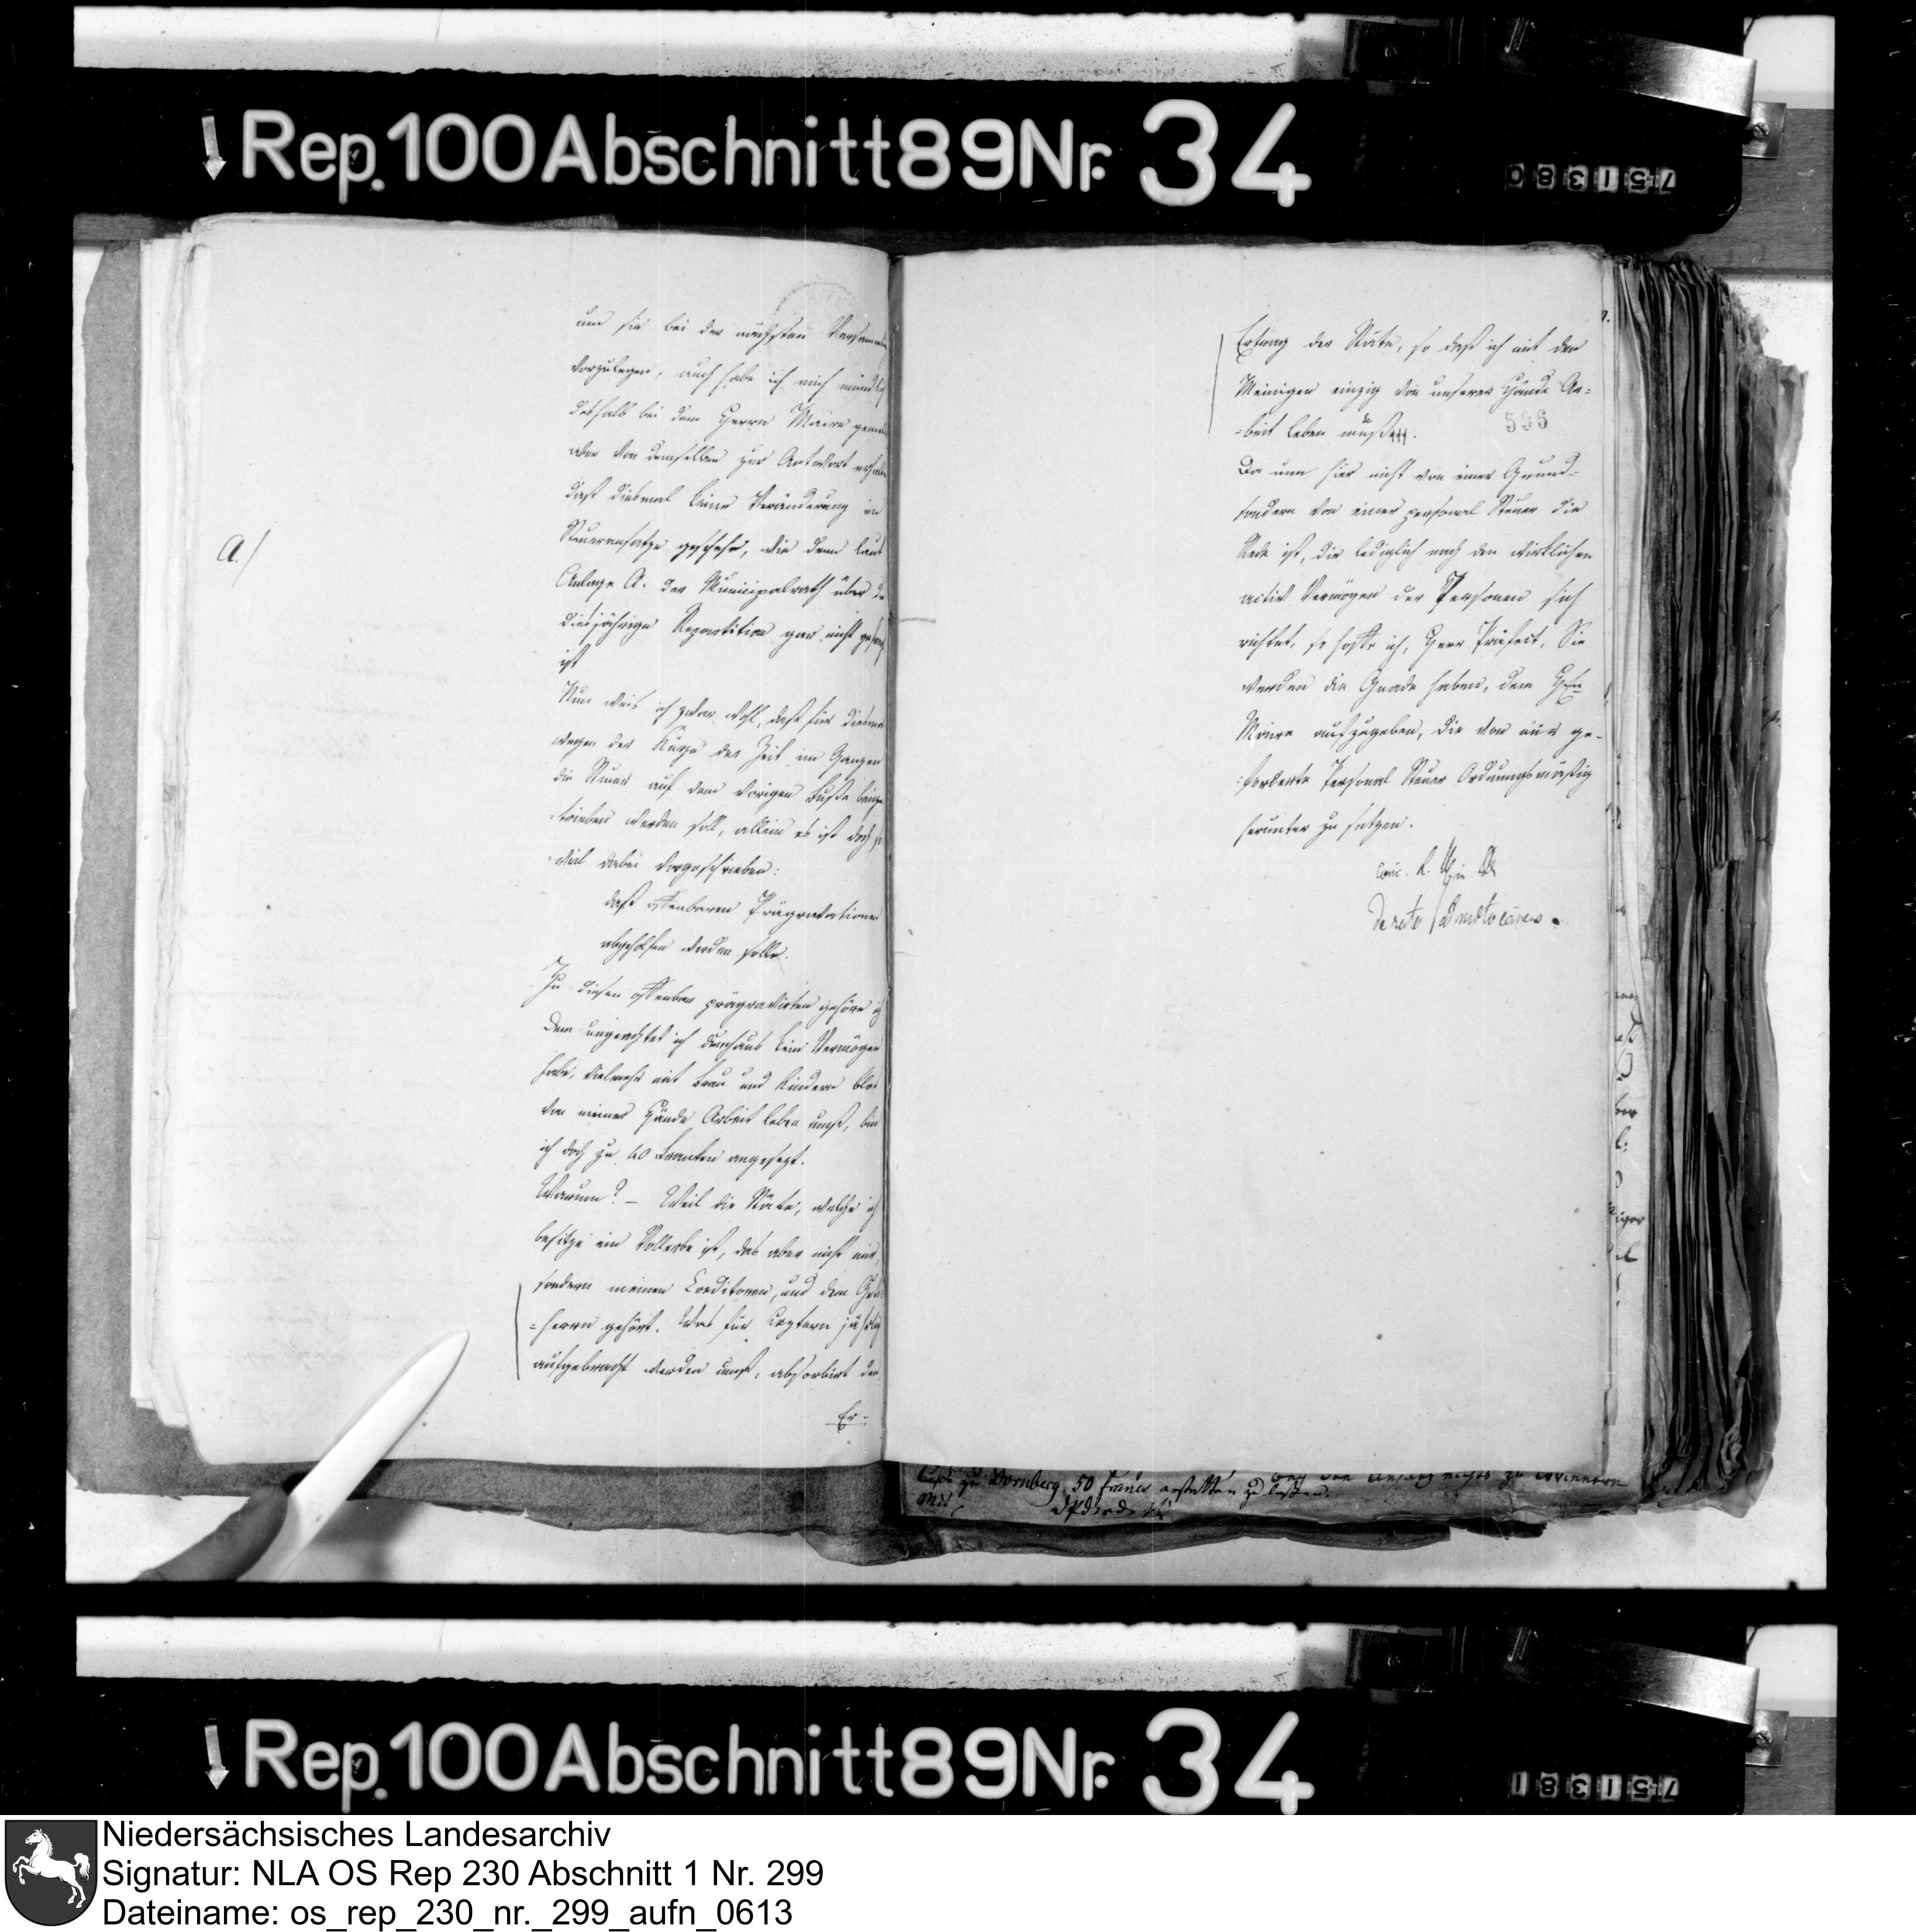 Rep. 100 Abschnitt 89 Nr. 34
751380
um sie bei der nächsten Versamml
vorzulegen, auch habe ich mich mündlich
deshalb bei dem Herrn Maire gemeldet
aber von demselben zur Antwort erhalten
daß diesmal keine Veränderung im
Steueransatze geschehe, wie denn laut
a./
Anlage A. der Municipalrath über die
diesjährige Repartition gar nicht gehört
ist
Nun weis ich zwar wohl, daß für diesmal
wegen der Kürze der Zeit im Ganzen
die Steuer auf dem vorigen Fuße beige
-trieben werden soll, allein es ist doch so
-viel dabei vorgeschrieben:
daß offenbaren Prägravationen
abgeholfen werden solle.
Zu diesen offenbar prägravirten gehöre ich
Dem ungeachtet ich durchaus kein Vermögen
habe, vielmehr mit Frau und Kindern blos
von meiner Hände Arbeit leben muß, bin
ich doch zu 40 Franken angesetzt.
Warum? – Weil die Stäte, welche ich
besitze ein Vollerbe ist, das aber nicht mir,
sondern meinen Creditoren, und dem Guts
=herrn gehört. Was für Letztern jährlich
aufgebracht werden muß, absorbirt den
Er-
Ertrag der Stäte, so daß ich mit den
Meinigen einzig von unserer Hände Ar=
=beit leben muß.
596
Da nun hier nicht von einer Grund=
sondern von einer personal Steuer die
Rede ist, die lediglich nach den wirklichen
activ Vermögen der Personen sich
richtet, so hoffe ich, Herr Präfect, Sie
werden die Gnade haben, dem Hrn
Maire aufzugeben, die von mir ge-
=forderte Personal Steuer Ordnungsmäßig
herunter zu setzen.
conc.
Dornberg 50 Francs erstatten zu laßen.
Rep. 100 Abschnitt 89 Nr. 34
751381
Niedersächsisches Landesarchiv
Signatur: NLA OS Rep 230 Abschnitt 1 Nr. 299
Dateiname: os_rep_230_nr._299_aufn_0613